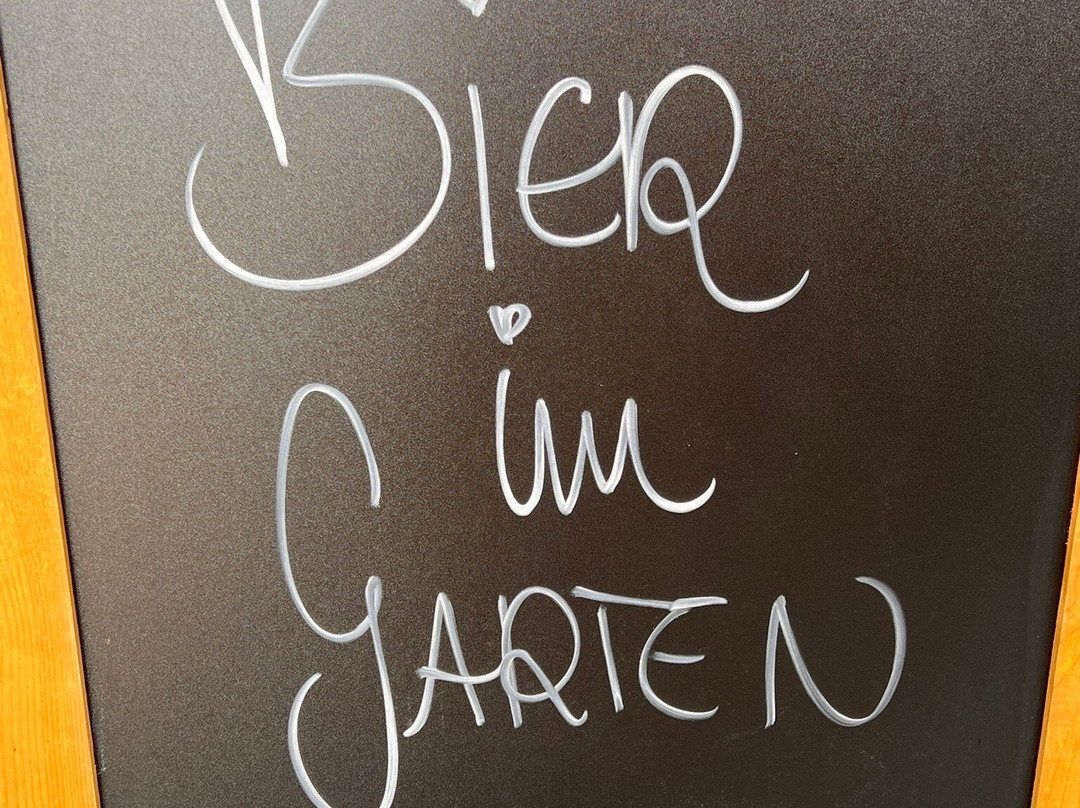 BIER
im
GARTEN